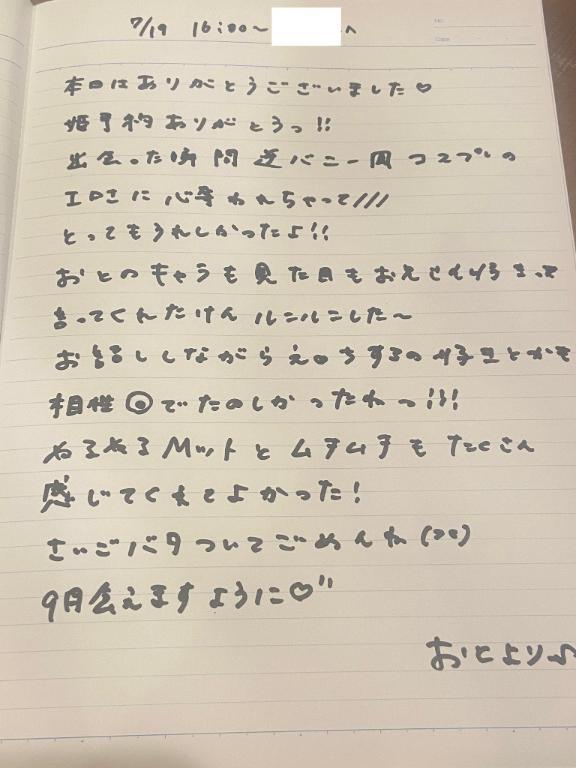 7/19 16:00〜 へ
本日はありがとうございました♡
姫予約ありがとうっ!!
出会った瞬間逆バニー風コスプレの
エロさに心奪われちゃって///
とってもうれしかったよ!!
おとのキャラも見た目もおえせ好きって
言ってくれたけんルンルンした〜
お話ししながらえっちするの好きとかも
相性◎でたのしかったねっ!!!
ぬるぬるMットとムチムチもたくさん
感じてくれてよかった!
さいごバタついてごめんね(>_<)
9月会えますように♡"
おとより♪